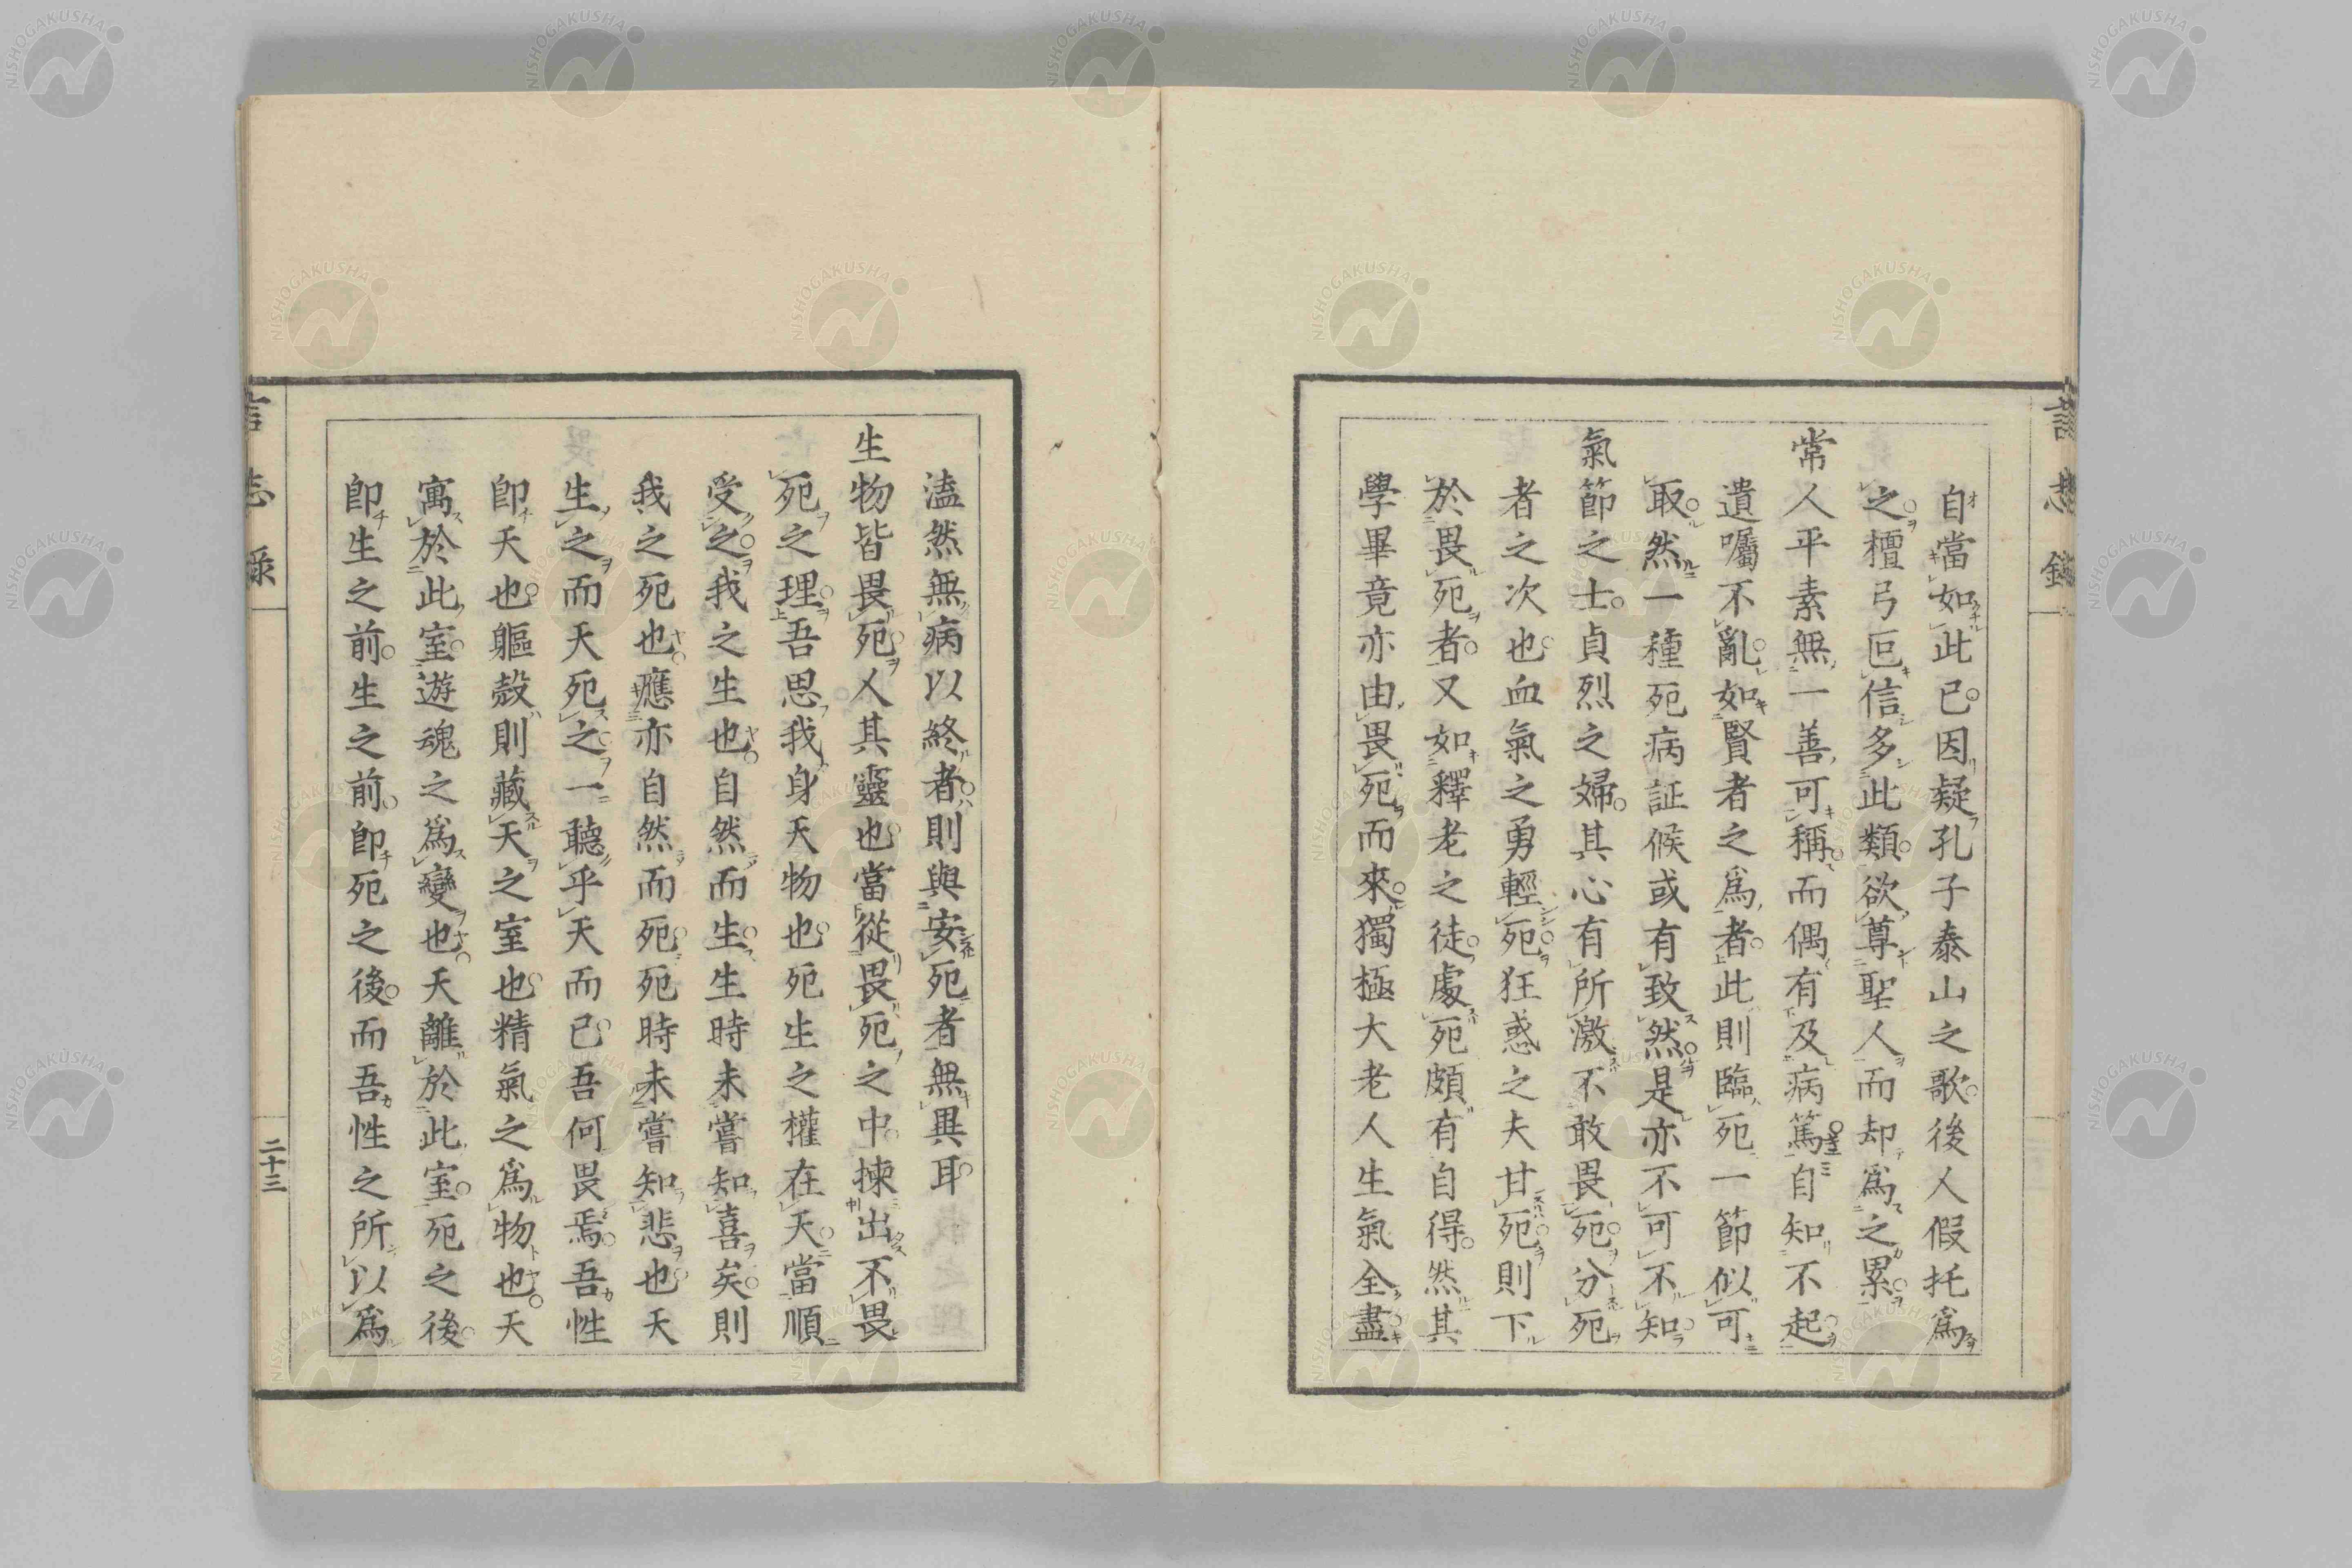 自當如此已因疑孔子泰山之歌後人假托爲
之檀弓叵信多此類欲尊聖人而却爲之累
常人平素無一善可稱而偶有及病篤自知不起
遺囑不亂如賢者之爲者此則臨死一節似可
取然一種死病証候或有致然是亦不可不知
氣節之士貞烈之婦其心有所激不敢畏死分死
者之次也血氣之勇輕死狂惑之夫甘死則下
於畏死者又如釋老之徒處死頗有自得然其
學畢竟亦由畏死而來獨極大老人生氣全盡
溘然無病以終者則與安死者無異耳
生物皆畏死人其靈也當從畏死之中揀出不畏
死之理吾思我身天物也死生之權在天當順
受之我之生也自然而生生時未嘗知喜矣則
我之死也應亦自然而死死時未嘗知悲也天
生之而天死之一聽乎天而已吾何畏焉吾性
卽天也軀殼則藏天之室也精氣之爲物也天
寓於此室遊魂之爲變也天離於此室死之後
卽生之前生之前卽死之後而吾性之所以爲
言志錄
二十三
NISHOGAKUSHA